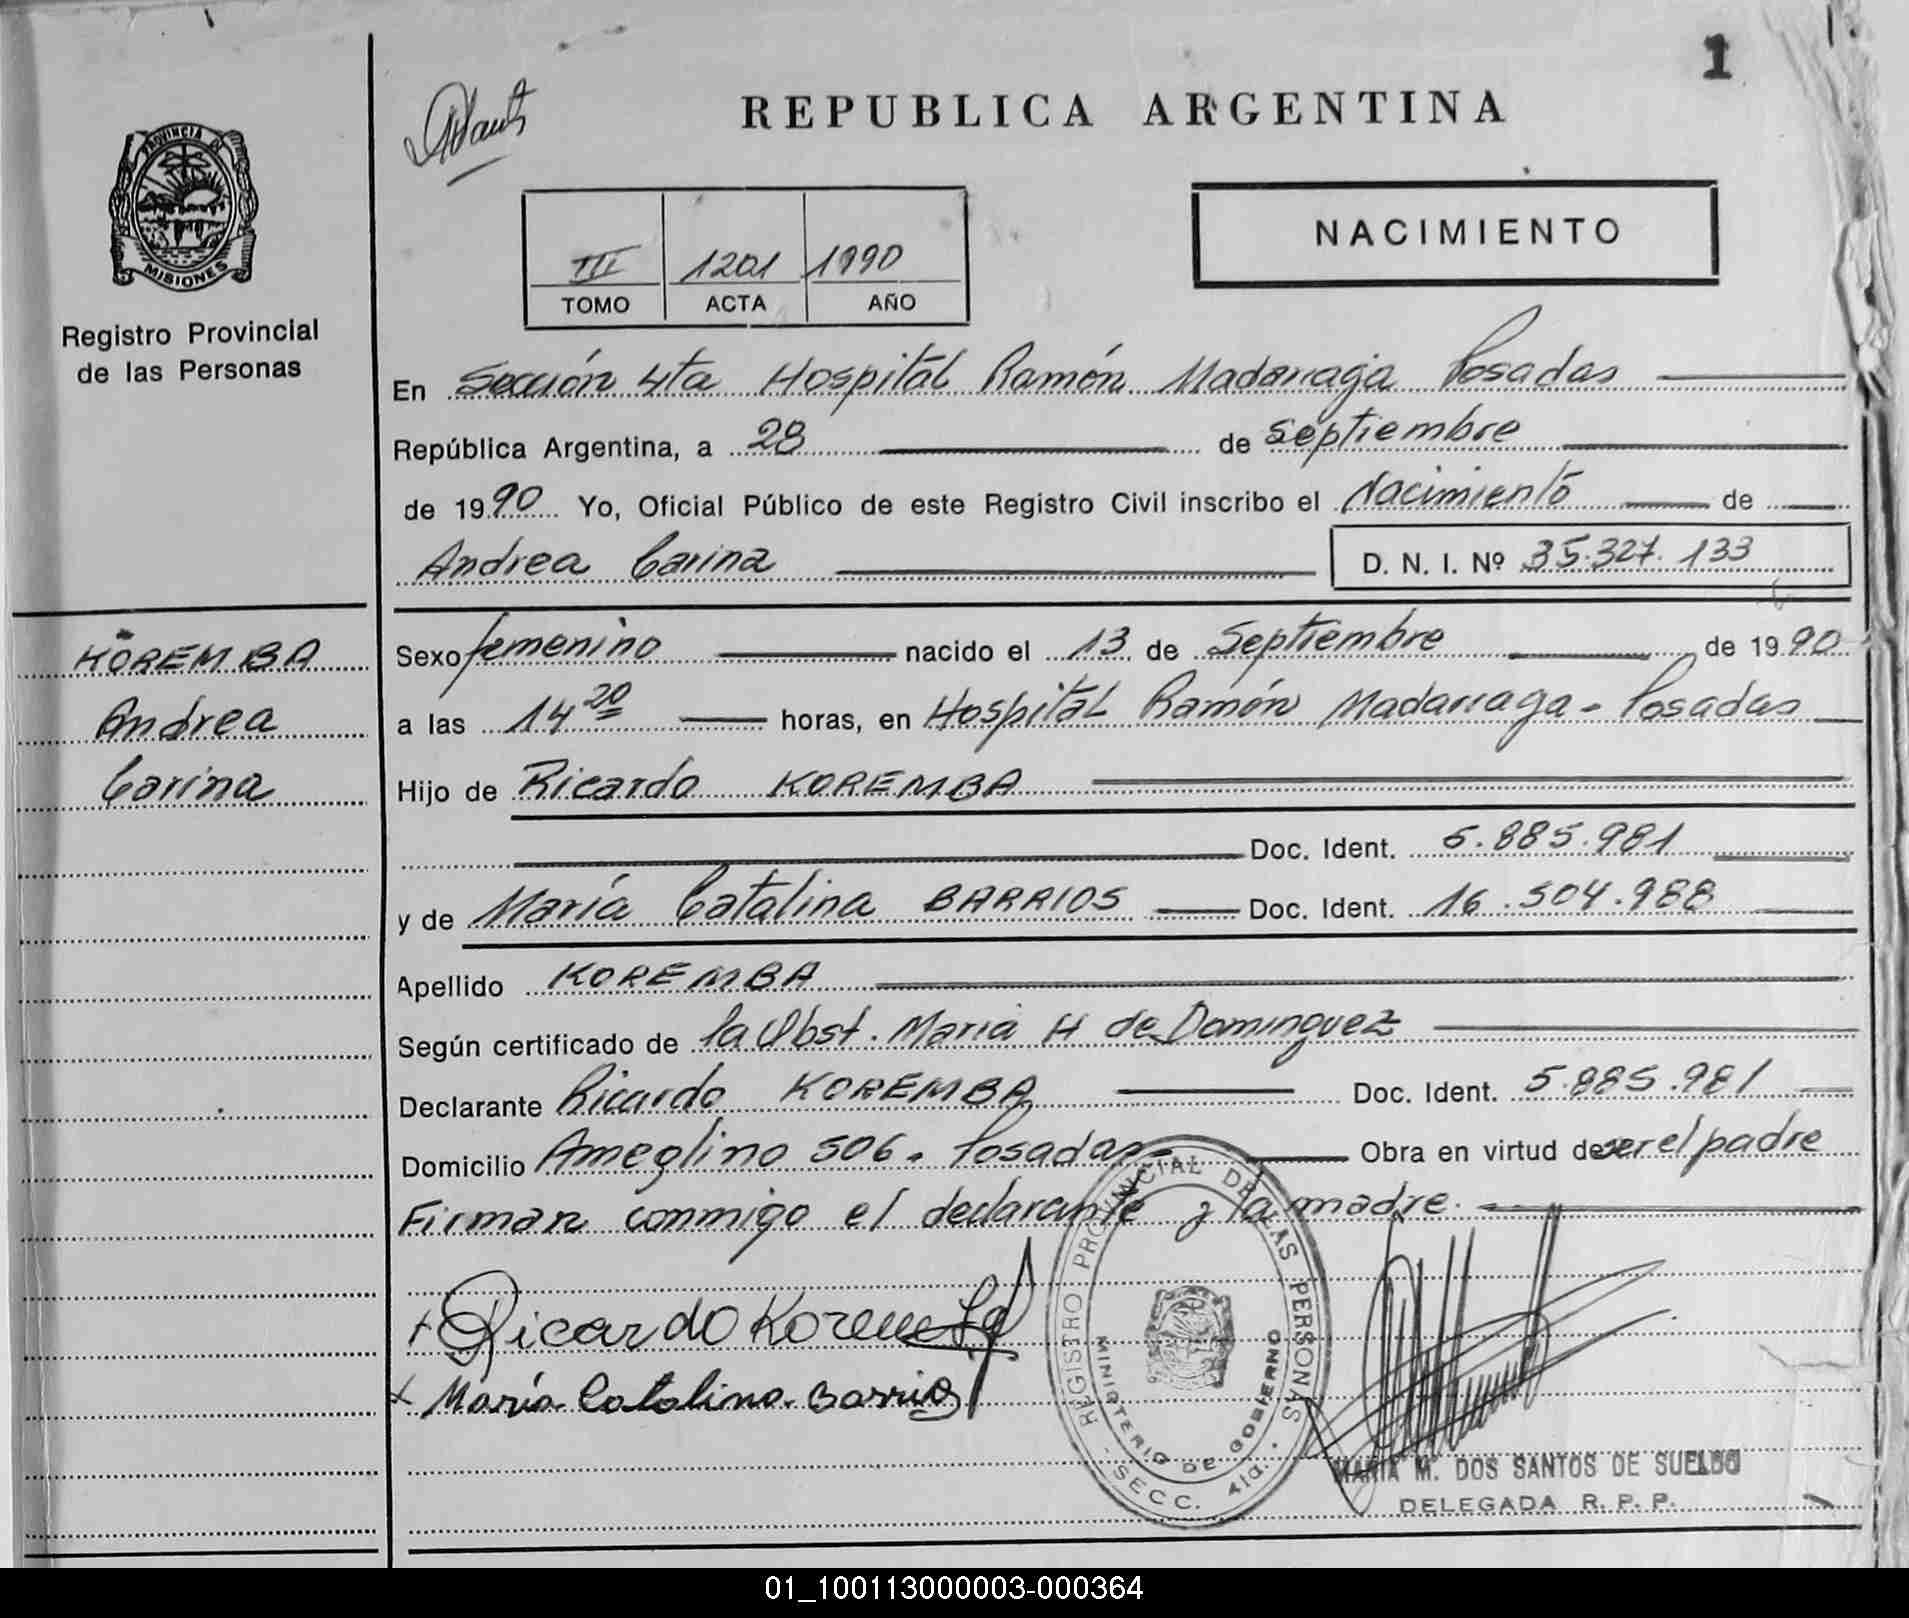 1
REPUBLICA ARGENTINA
PROVINCIA DE
MISIONES
Registro Provincial
de las Personas
NACIMIENTO
III 1201 1990
TOMO ACTA AÑO
En Sección 4ta Hospital Ramón Madariaga Posadas
República Argentina, a 28 de Septiembre
de 1990 Yo, Oficial Público de este Registro Civil inscribo el Nacimiento de
Andrea Carina D. N. I. Nº 35.327.133
KOREMBA
Andrea
Carina
Sexo femenino nacido el 13 de Septiembre de 1990
a las 14 20 horas, en Hospital Ramón Madariaga - Posadas
Hijo de Ricardo KOREMBA
Doc. Ident. 5.885.981
y de María Catalina BARRIOS Doc. Ident. 16.504.988
Apellido KOREMBA
Según certificado de la Obst. María H de Dominguez
Declarante Ricardo KOREMBA Doc. Ident. 5.885.981
Domicilio Ameglino 506. Posadas Obra en virtud de ser el padre
Firman conmigo el declarante y la madre.
Ricardo Koremba
María Catalina Barrios
REGISTRO PROVINCIAL DE LAS PERSONAS
MINISTERIO DE GOBIERNO
SECC. 4ta.
MARIA M. DOS SANTOS DE
DELEGADA R. P. P.
01_100113000003-000364